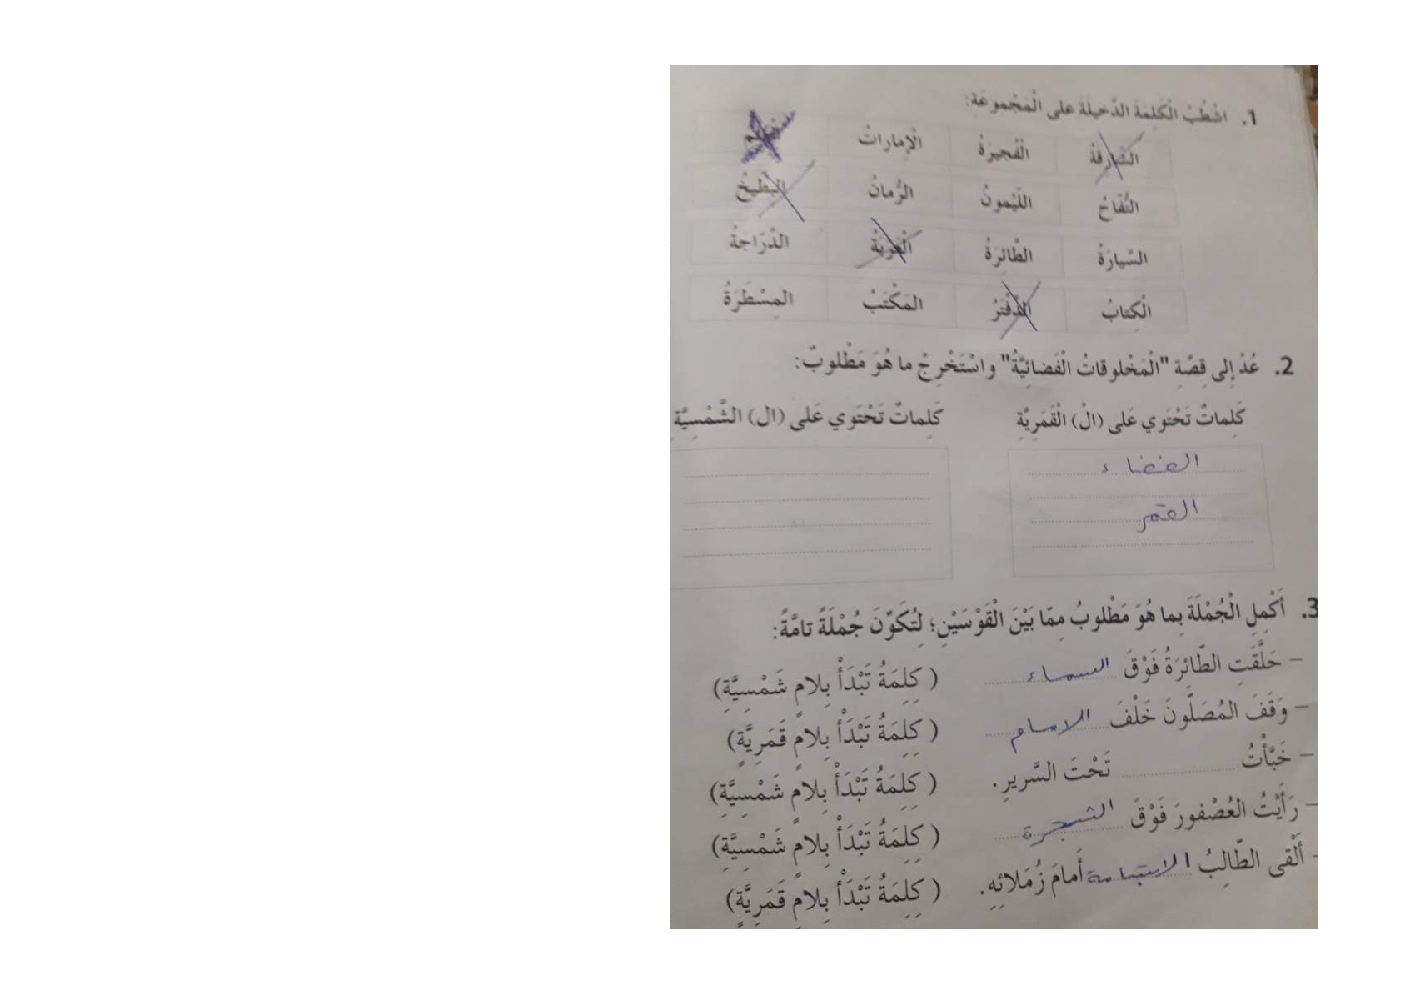 1. اشْطُبْ الْكَلِمَةَ الدَّخيلَةَ على الْمَجْموعَةِ:
الشّارِقَةُ الْفُجَيْرَةُ الْإماراتُ
التُّفّاحُ اللَّيْمونُ الرُّمانُ البَطّيخُ
السَّيارَةُ الطّائِرَةُ الْعَرَبَةُ الدَّرّاجَةُ
الْكِتابُ الدَّفْتَرُ المَكْتَبُ المِسْطَرَةُ
2. عُدْ إلى قِصَّةِ "الْمَخْلوقاتُ الْفَضائِيَّةُ" واسْتَخْرِجْ ما هُوَ مَطْلوبٌ:
كَلِماتٌ تَحْتَوي عَلى (الْ) الْقَمَرِيَّةِ كَلِماتٌ تَحْتَوي عَلى (ال) الشَّمْسِيَّةِ
الفضاء
القمر
3. أَكْمِلِ الْجُمْلَةَ بِما هُوَ مَطْلوبُ مِمّا بَيْنَ الْقَوْسَيْنِ؛ لِتُكَوِّنَ جُمْلَةً تامَّةً:
– حَلَّقَتِ الطّائِرَةُ فَوْقَ السماء (كَلِمَةُ تَبْدَأُ بِلامٍ شَمْسِيَّةٍ)
– وَقَفَ المُصَلُّونَ خَلْفَ الامام (كَلِمَةُ تَبْدَأُ بِلامٍ قَمَرِيَّةٍ)
– خَبَّأْتُ ........ تَحْتَ السَّريرِ. (كَلِمَةُ تَبْدَأُ بِلامٍ شَمْسِيَّةٍ)
– رَأَيْتُ العُصْفورَ فَوْقَ الشجرة (كَلِمَةُ تَبْدَأُ بِلامٍ شَمْسِيَّةٍ)
– أَلْقى الطّالِبُ الابتسامة أَمامَ زُمَلائِهِ. (كَلِمَةُ تَبْدَأُ بِلامٍ قَمَرِيَّةٍ)